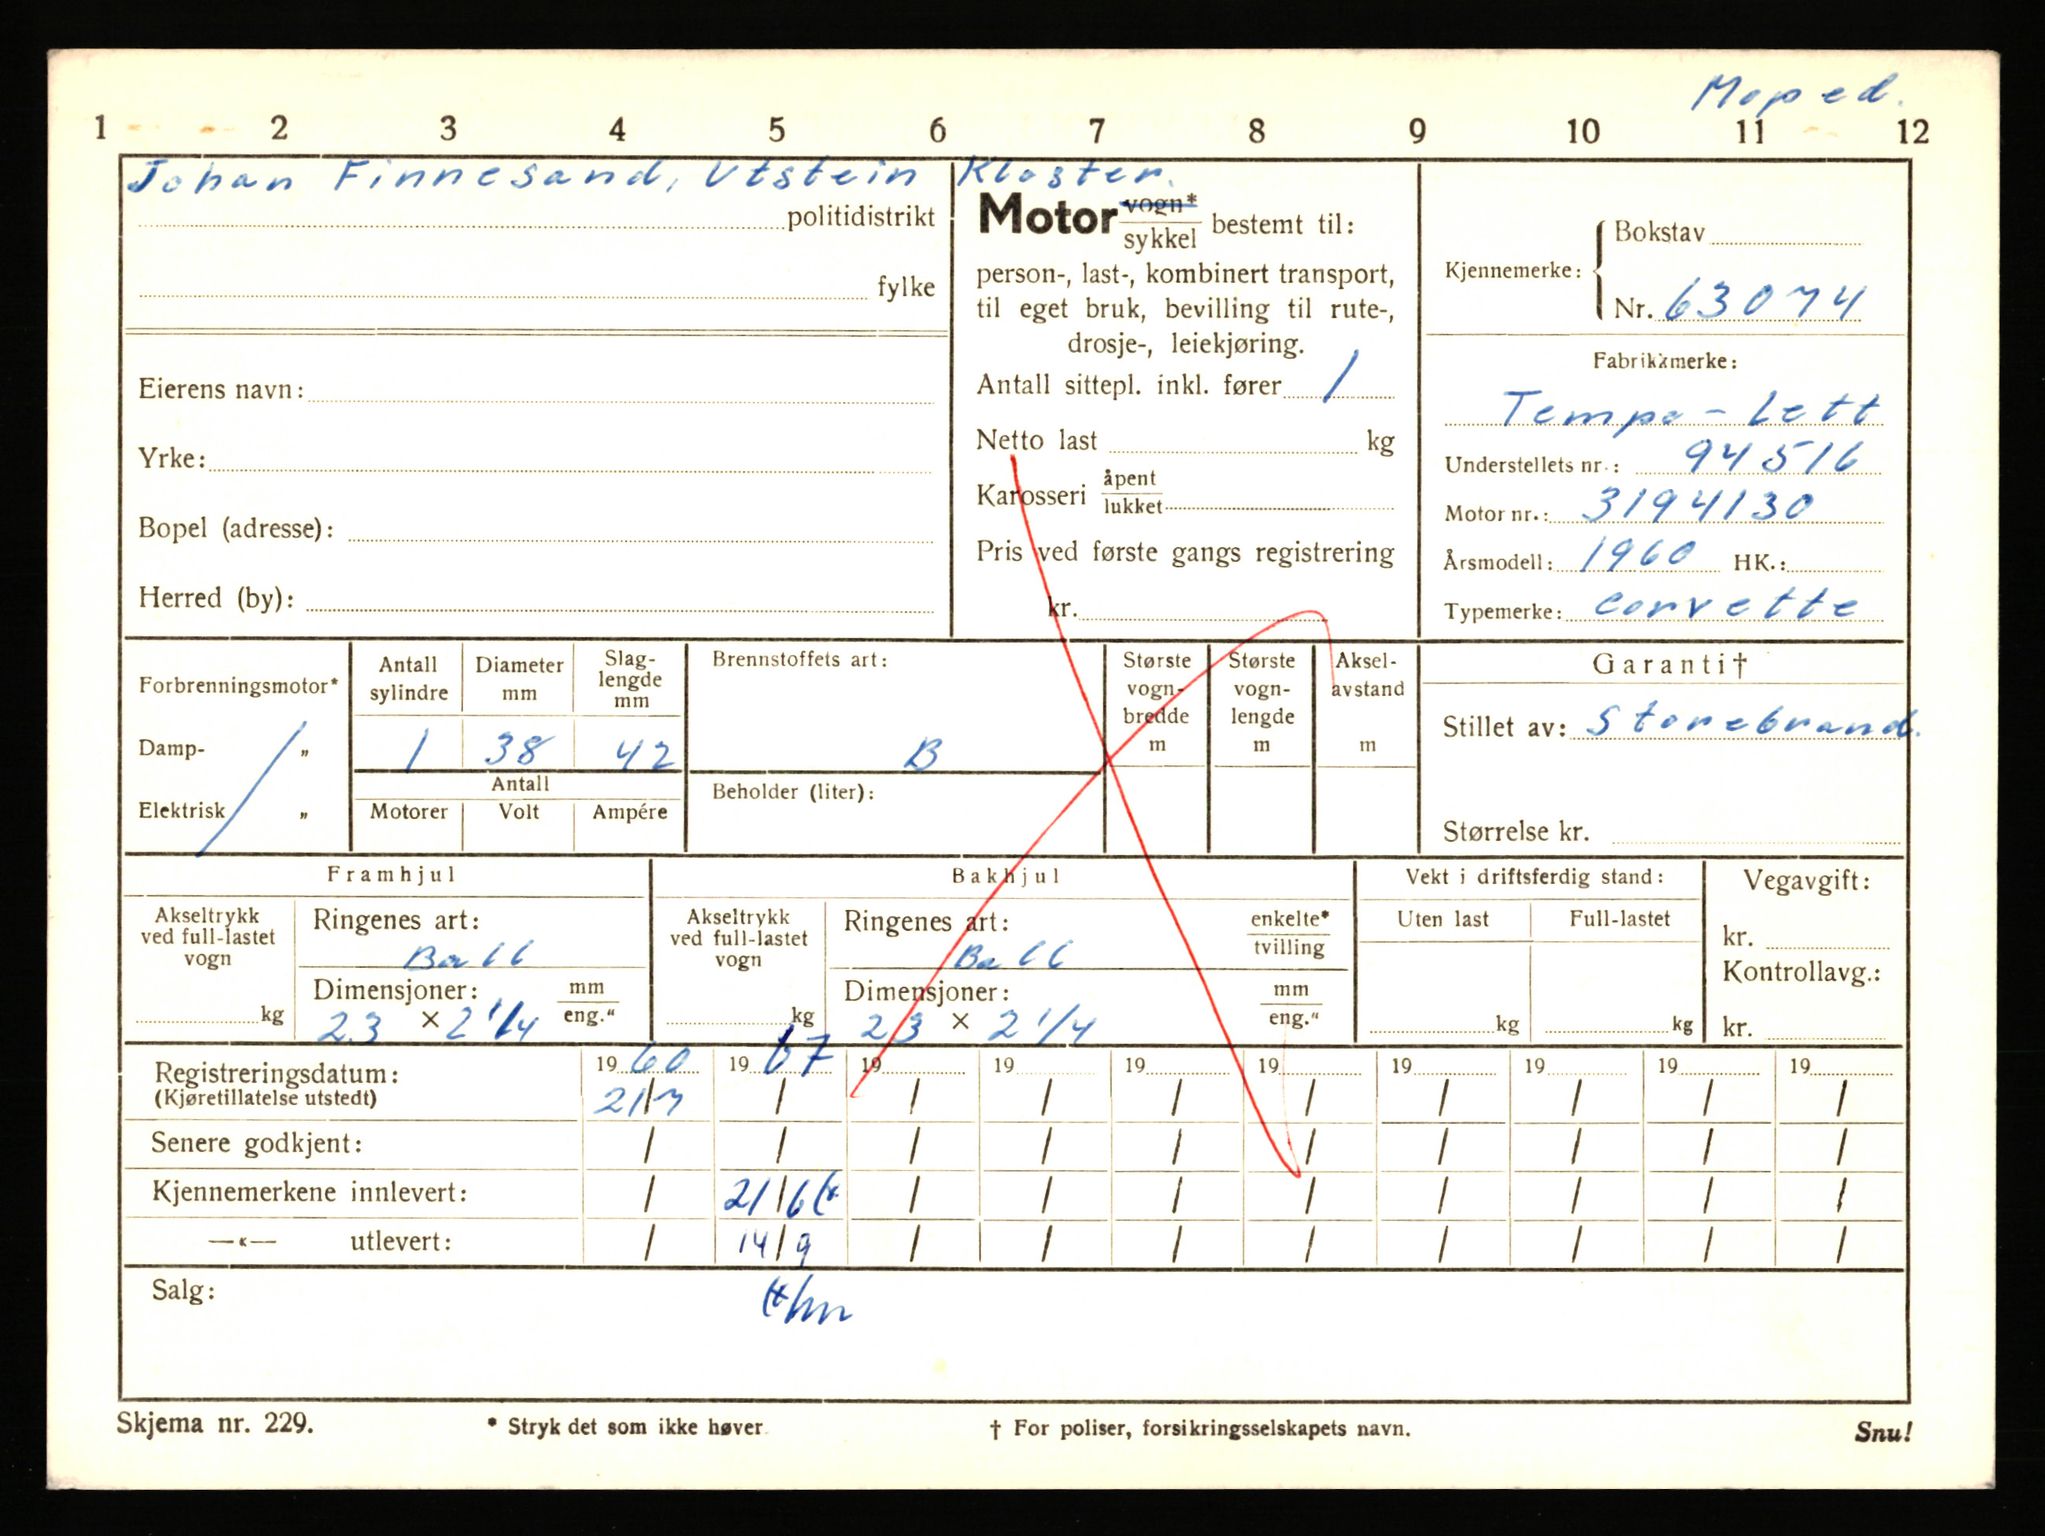 Moped.
1 2 3 4 5 6 7 8 9 10 11 12
Johan Finnesand, Utstein Kloster.
politidistrikt
fylke
Eierens navn:
Yrke:
Bopel (adresse):
Herred (by):
Motor vogn* / sykkel bestemt til:
person-, last-, kombinert transport,
til eget bruk, bevilling til rute-,
drosje-, leiekjøring.
Antall sittepl. inkl. fører 1
Netto last kg
Karosseri åpent / lukket
Pris ved første gangs registrering
kr.
Kjennemerke: Bokstav
Nr. 63074
Fabrikkmerke:
Tempo-Lett
Understellets nr.: 94516
Motor nr.: 3194130
Årsmodell: 1960 HK.:
Typemerke: corvette
Forbrenningsmotor*
Damp- „
Elektrisk „
Antall sylindre
1
Diameter mm
38
Slag-lengde mm
42
Antall
Motorer Volt Ampére
Brennstoffets art:
B
Beholder (liter):
Største vogn-bredde m
Største vogn-lengde m
Aksel-avstand m
Garanti†
Stillet av: Storebrand.
Størrelse kr.
Framhjul
Akseltrykk ved full-lastet vogn
kg
Ringenes art:
Ball
Dimensjoner: mm / eng."
23 × 2 1/4
Bakhjul
Akseltrykk ved full-lastet vogn
kg
Ringenes art: enkelte* / tvilling
Ball
Dimensjoner: mm / eng."
23 × 2 1/4
Vekt i driftsferdig stand:
Uten last Full-lastet
kg kg
Vegavgift:
kr.
Kontrollavg.:
kr.
Registreringsdatum: 1960 1967 19 19 19 19 19 19 19 19
(Kjøretillatelse utstedt) 21/7 / / / / / / / / /
Senere godkjent: / / / / / / / / / /
Kjennemerkene innlevert: / 21/6 (* / / / / / / / /
—«— utlevert: / 14/9 / / / / / / / /
Salg:
Skjema nr. 229. * Stryk det som ikke høver. † For poliser, forsikringsselskapets navn. Snu!